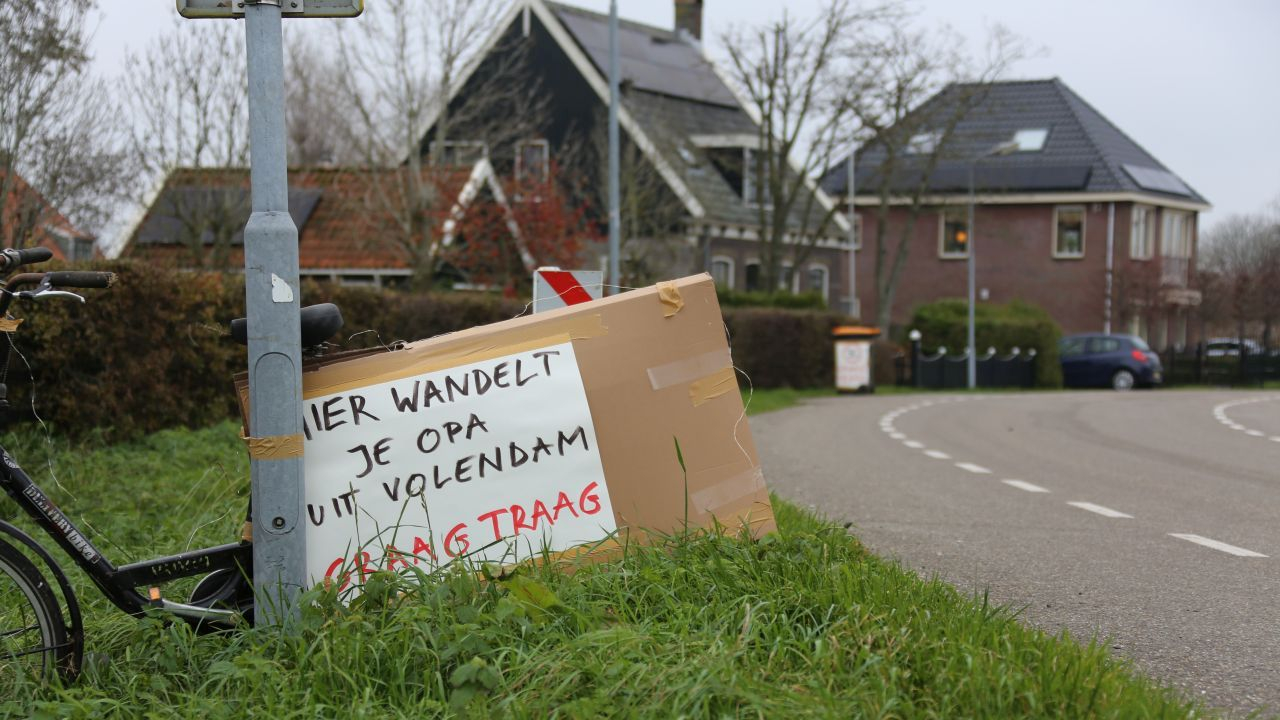 HIER WANDELT
JE OPA
UIT VOLENDAM
GRAAG TRAAG